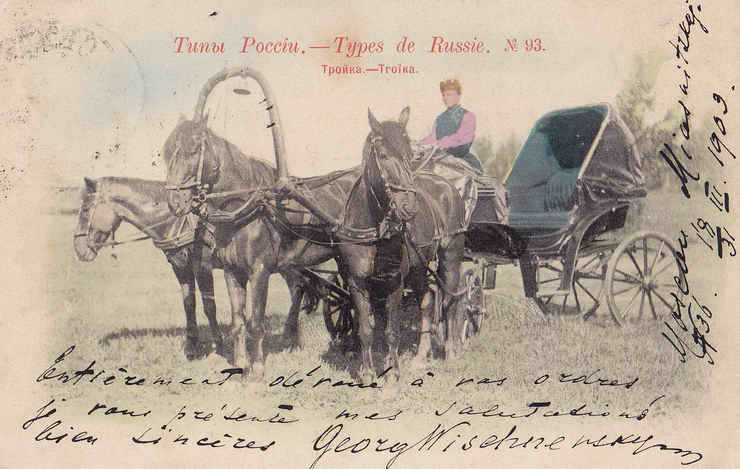 Типы Россіи.—Types de Russie. № 93.
Тройка.—Troïka.
Entièrement dévoué à vos ordres
je vous présente mes salutations
bien sincères Georg Wischnewsky
Moscou Miasnitzkaj
№ 36. 18/31 III 1903.